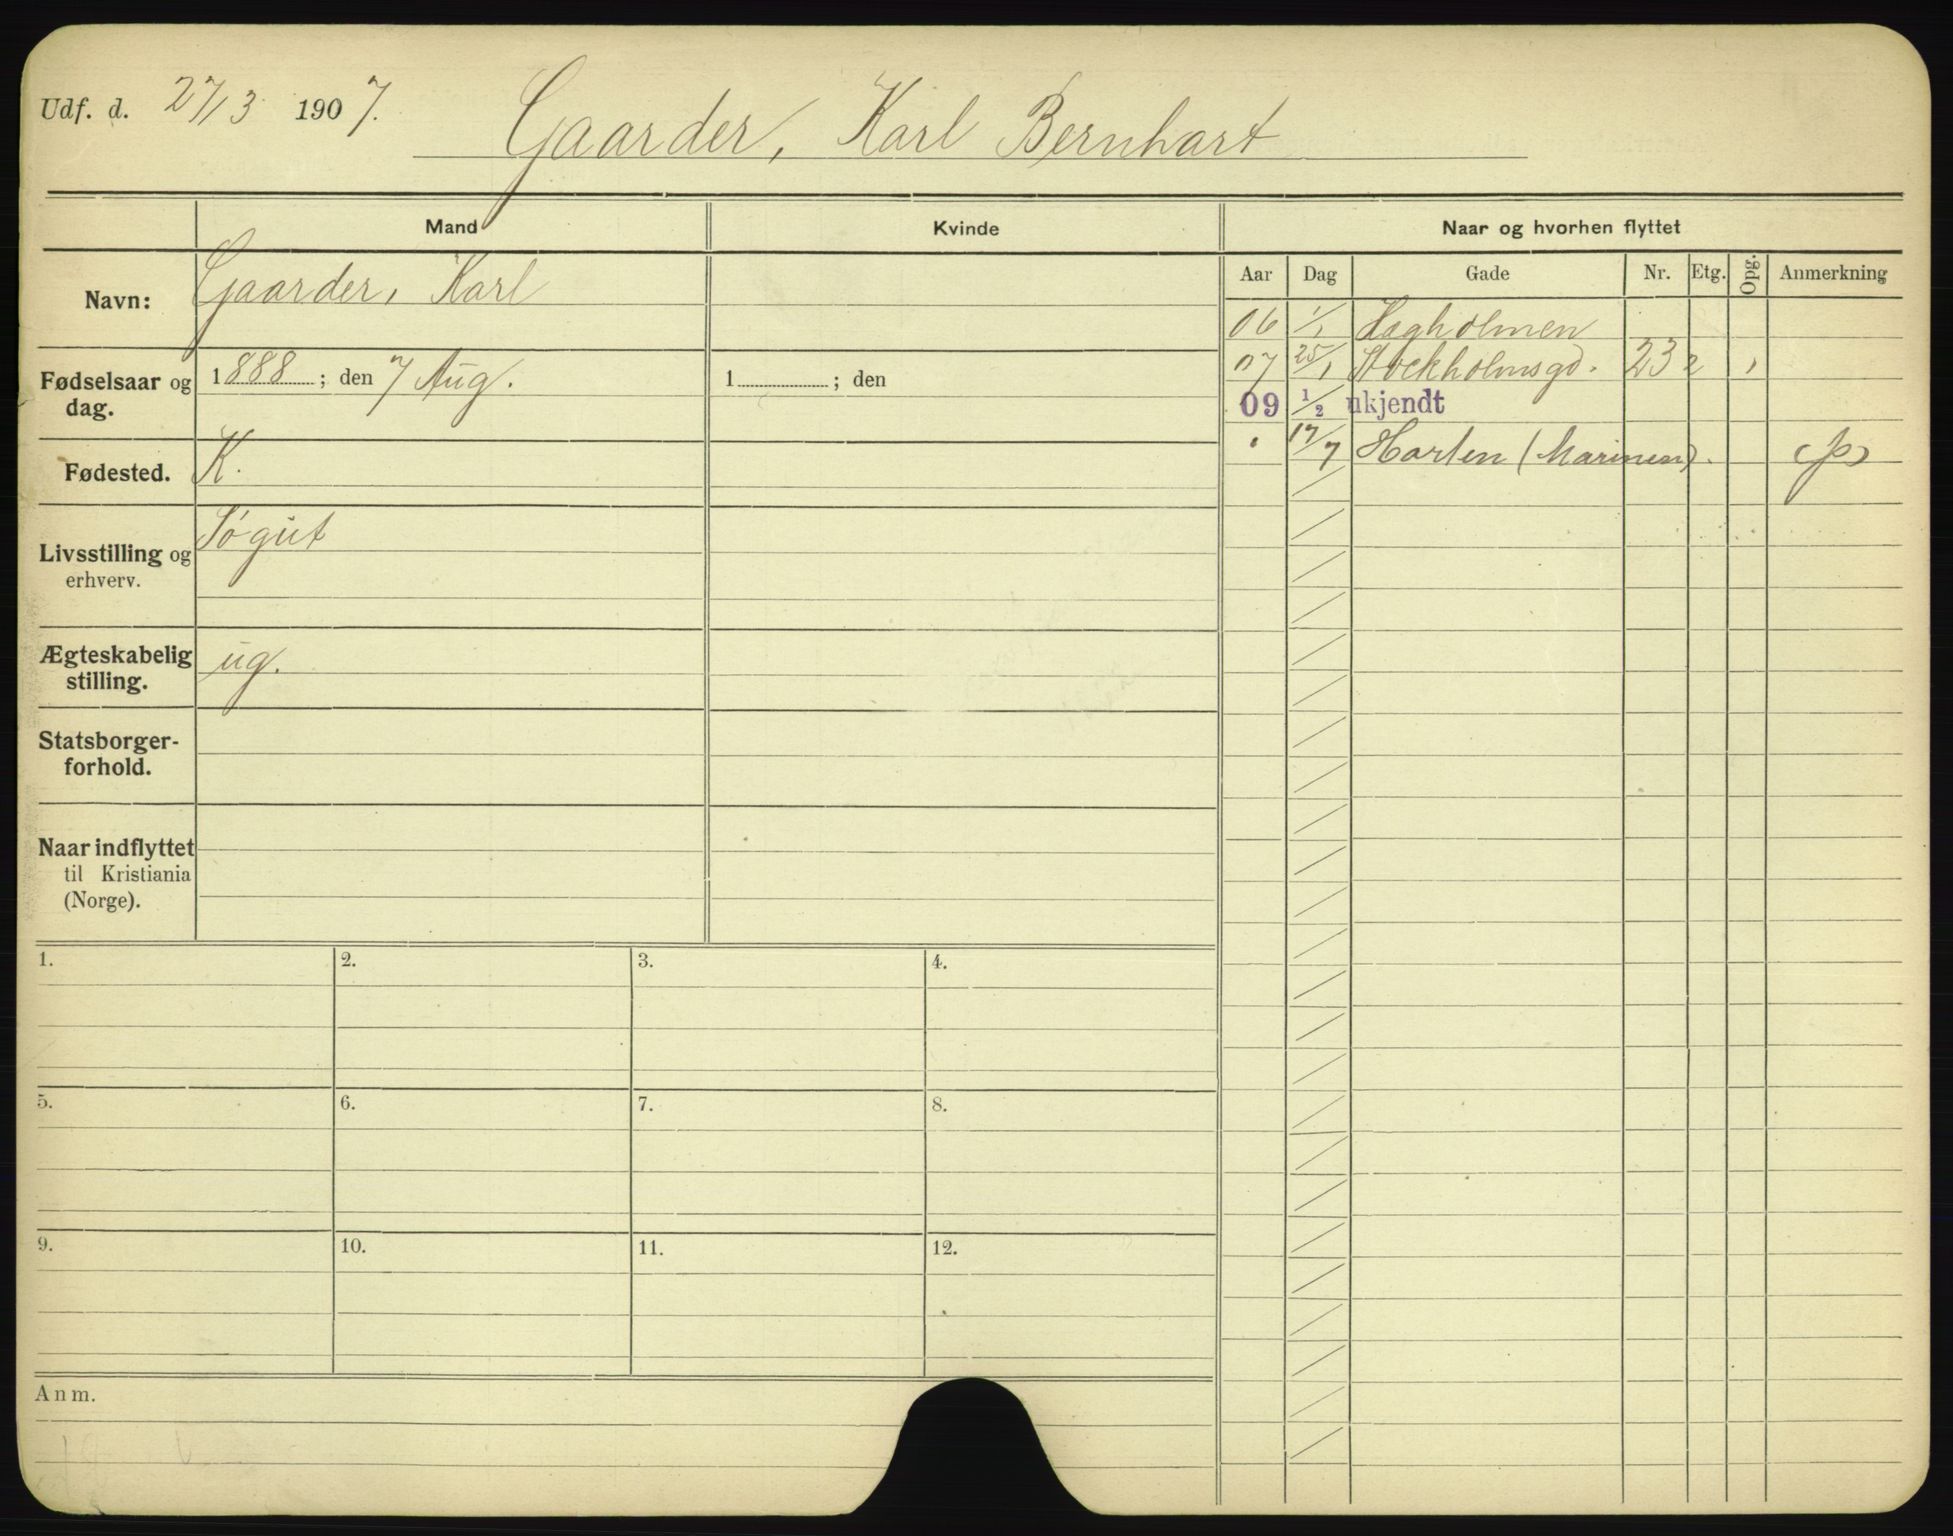 Udf. d. 27/3 1907.
Gaarder, Karl Bernhart
Mand Kvinde Naar og hvorhen flyttet
Aar Dag Gade Nr. Etg. Opg. Anmerkning
Navn: Gaarder, Karl
06 1/1 Hægholmen
Fødselsaar og dag. 1888; den 7 Aug. 1 ; den
07 25/1 Stockholmsgd. 23 2 1
09 1/2 ukjendt
" 17/7 Horten (Marinen). (p)
Fødested. K.
Livsstilling og erhverv. Søgut
Ægteskabelig stilling. ug.
Statsborger-
forhold.
Naar indflyttet
til Kristiania
(Norge).
1. 2. 3. 4.
5. 6. 7. 8.
9. 10. 11. 12.
Anm.